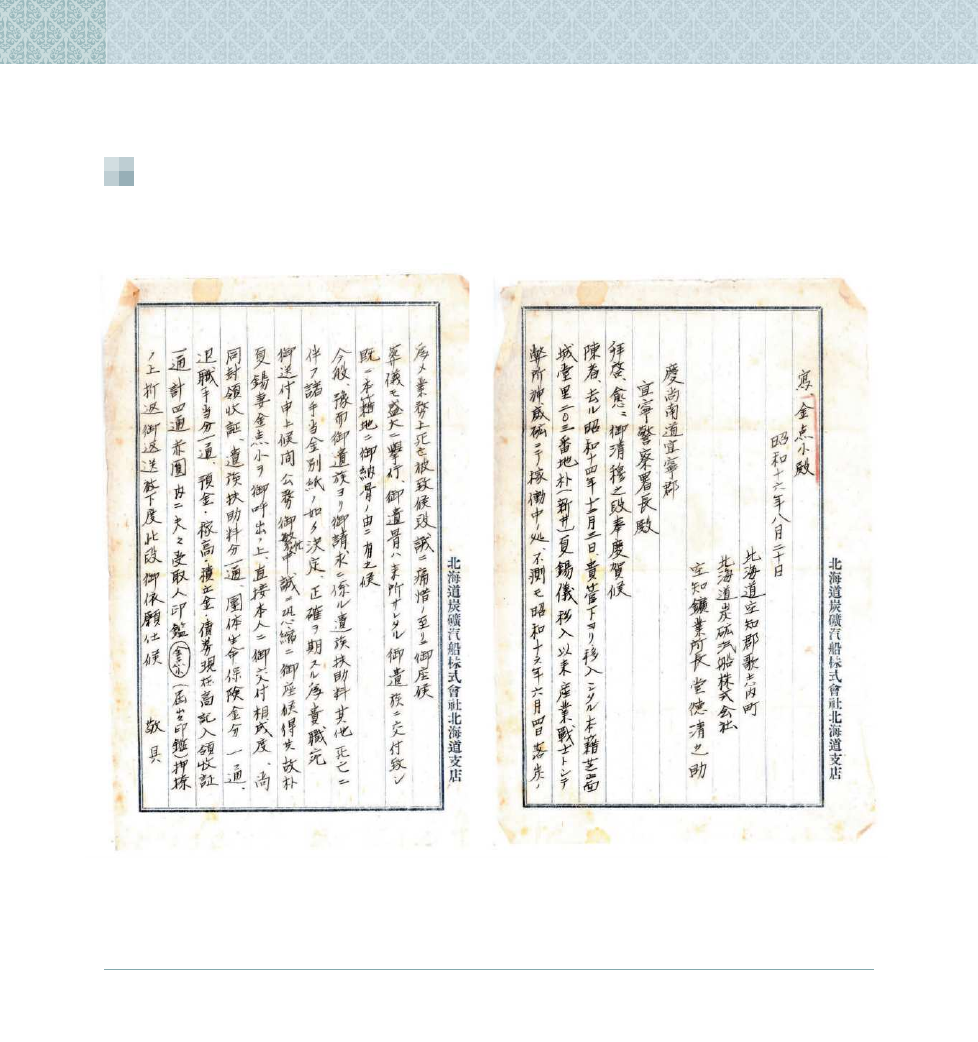 寫 金点小殿
昭和十六年八月二十日
北海道空知郡歌志内町
北海道炭砿汽船株式会社
空知鑛業所長 堂徳清之助
慶尚南道宜寧郡
宜寧警察署長殿
拝啓、愈々御清穆之段奉慶賀候
陳者、去ル昭和十四年十二月三日、貴管下ヨリ移入シタル本籍芝正面
城堂里二〇三番地朴(新井)夏錫儀移入以来産業戰士トシテ
弊所神威砿ニテ稼働中ノ処、不測モ昭和十六年六月四日落炭ノ
北海道炭礦汽船株式會社北海道支店
為メ業務上死亡被致候段誠ニ痛惜ノ至リ御座候
葬儀モ盛大ニ擧行、御遺骨ハ来所サレタル御遺族ニ交付致シ
既ニ本籍地ニ御納骨ノ由ニ有之候
今般、豫而御遺族ヨリ御請求ニ係ル遺族扶助料其他死亡ニ
伴フ諸手当金別紙ノ如ク決定、正確ヲ期スル為貴職宛
御送付申上候間公務御繁忙中誠ニ恐縮ニ御座候得共故朴
夏錫妻金点小ヲ御呼出ノ上、直接本人ニ御交付相成度、尚
同封領收証、遺族扶助料分一通、團体生命保険金分一通、
退職手当分一通、預金・稼高・積立金・債券現在高記入領收証
一通計四通赤圏内ニ夫々受取人印鑑(届出印鑑)押捺
ノ上折返御返送被下度此段御依願仕候 敬具
北海道炭礦汽船株式會社北海道支店